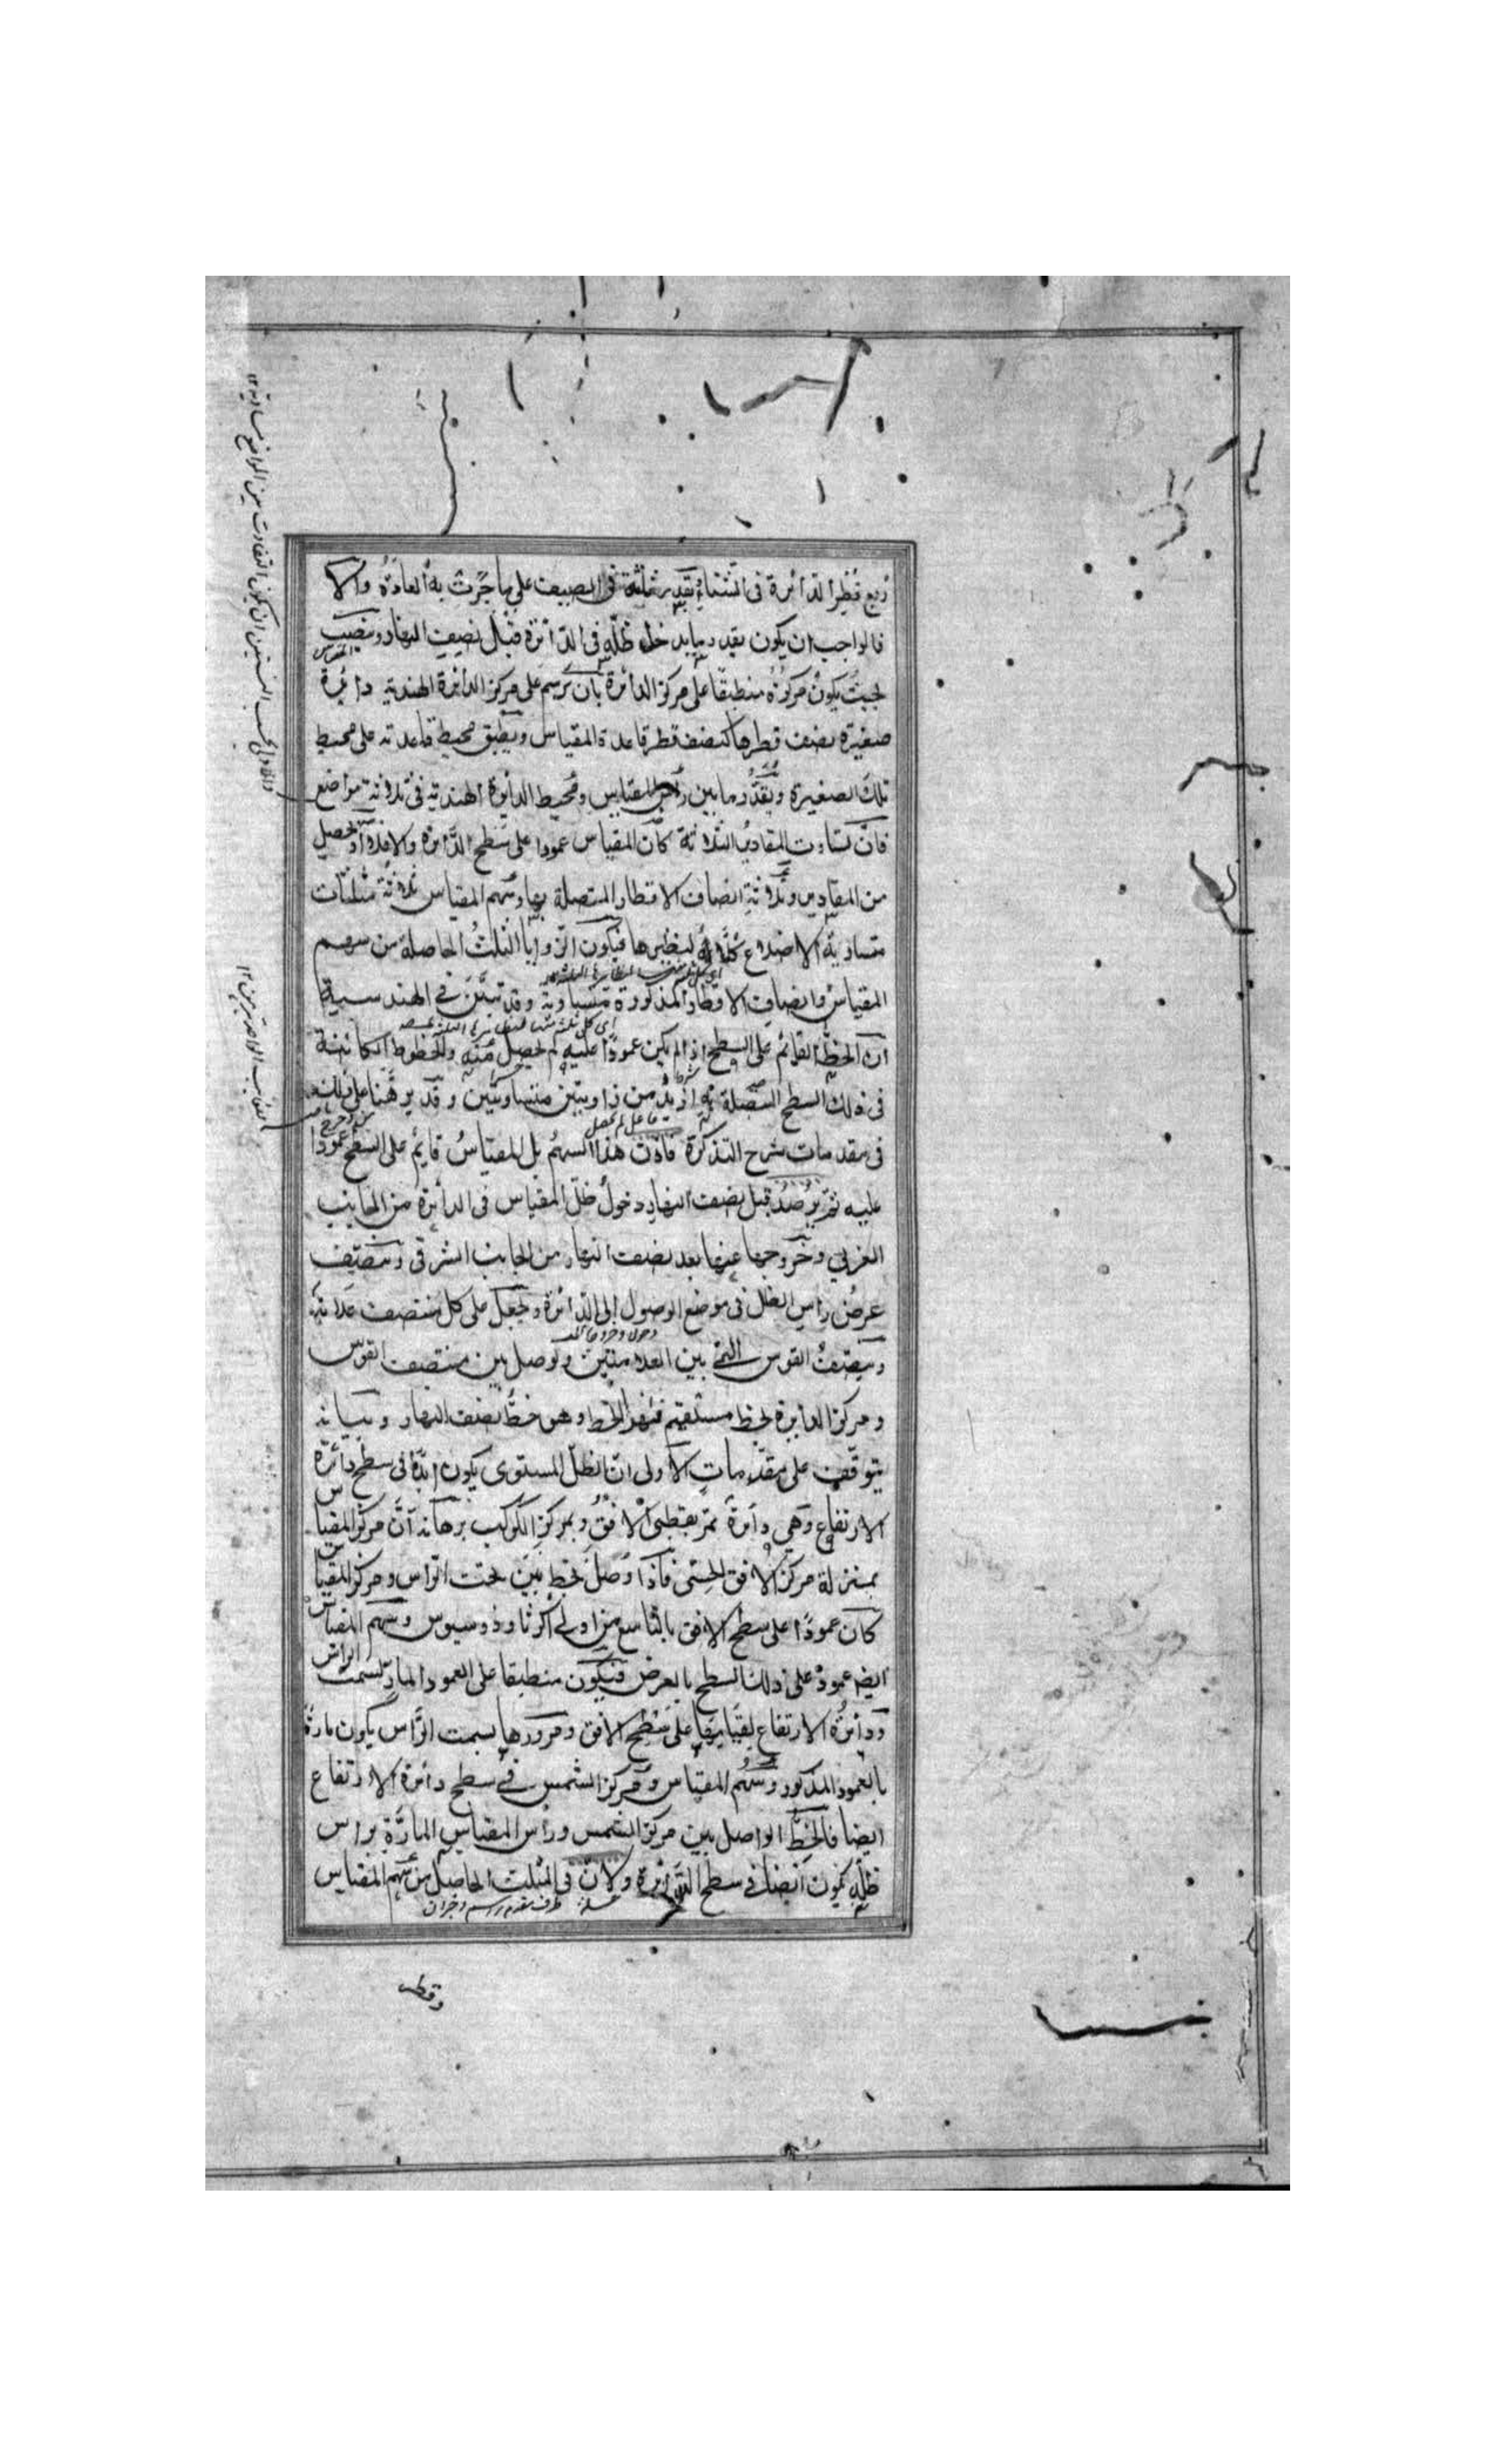 ربع قطر الدائرة فى الشتاء وبقدر ثلثه فى الصيف على ما جرت به العادة والا
فالواجب ان يكون بقدر ما يدخل ظله فى الدائرة قبل نصف النهار وينصب المقياس
بحيث يكون مركزه منطبقا على مركز الدائرة بان يرسم على مركز الدائرة الهندية دائرة
صغيرة نصف قطرها كنصف قطر قاعدة المقياس ويطبق محيط قاعدته على محيط
تلك الصغيرة ويقدر ما بين رأس المقياس ومحيط الدائرة الهندية فى ثلاثة مواضع
فان تساوت المقادير الثلاثة كان المقياس عمودا على سطح الدائرة والا فلا اذ يحصل
من المقادير وثلاثة انصاف الاقطار المتصلة بها وسهم المقياس ثلاثة مثلثات
متساوية الاضلاع كل لنظيرها فيكون الزوايا الثلث الحاصلة من سهم
المقياس وانصاف الاقطار المذكورة متساوية وقد تبين فى الهندسة
ان الخط القائم على السطح اذا لم يكن عمودا عليه لم يحصل منه والخطوط الكائنة
فى ذلك السطح المتصلة به ازيد من زاويتين متساويتين وقد برهنا على ذلك
فى مقدمات شرح التذكرة فاذن هذا السهم بل المقياس قايم على السطح عمودا
عليه ثم يرصد قبل نصف النهار دخول ظل المقياس فى الدائرة من الجانب
الغربي وخروجها عنها بعد نصف النهار من الجانب الشرقى وينصف
عرض راس الظل فى موضع الوصول الى الدائرة ويجعل على كل منتصف علامة
وينصف القوس التى بين العلامتين ويوصل بين منتصف القوس
ومركز الدايرة بخط مستقيم فهذا الخط وهو خط نصف النهار وبيانه
يتوقف على مقدمات الاولى ان الظل المستوى يكون ابدا فى سطح دائرة
الارتفاع وهى دائرة تمر بقطبى الافق وبمركز الكوكب برهانه ان مركز المقياس
بمنزلة مركز الافق الحسى فاذا وصل بخط بين سمت الراس ومركز المقياس
كان عمودا على سطح الافق بالتاسع من اولى اكر ثاوذوسيوس وسهم المقياس
ايضا عمود على ذلك السطح بالعرض فيكون منطبقا على العمود المار بسمت الراس
ودائرة الارتفاع لقيامها على سطح الافق ومرورها بسمت الراس يكون مارة
بالعمود المذكور وسهم المقياس ومركز الشمس فى سطح دائرة الارتفاع
ايضا فالخط الواصل بين مركز الشمس وراس المقياس المارة براس
ظله يكون ايضا فى سطح الدائرة ولان فى المثلث الحاصل من سهم المقياس